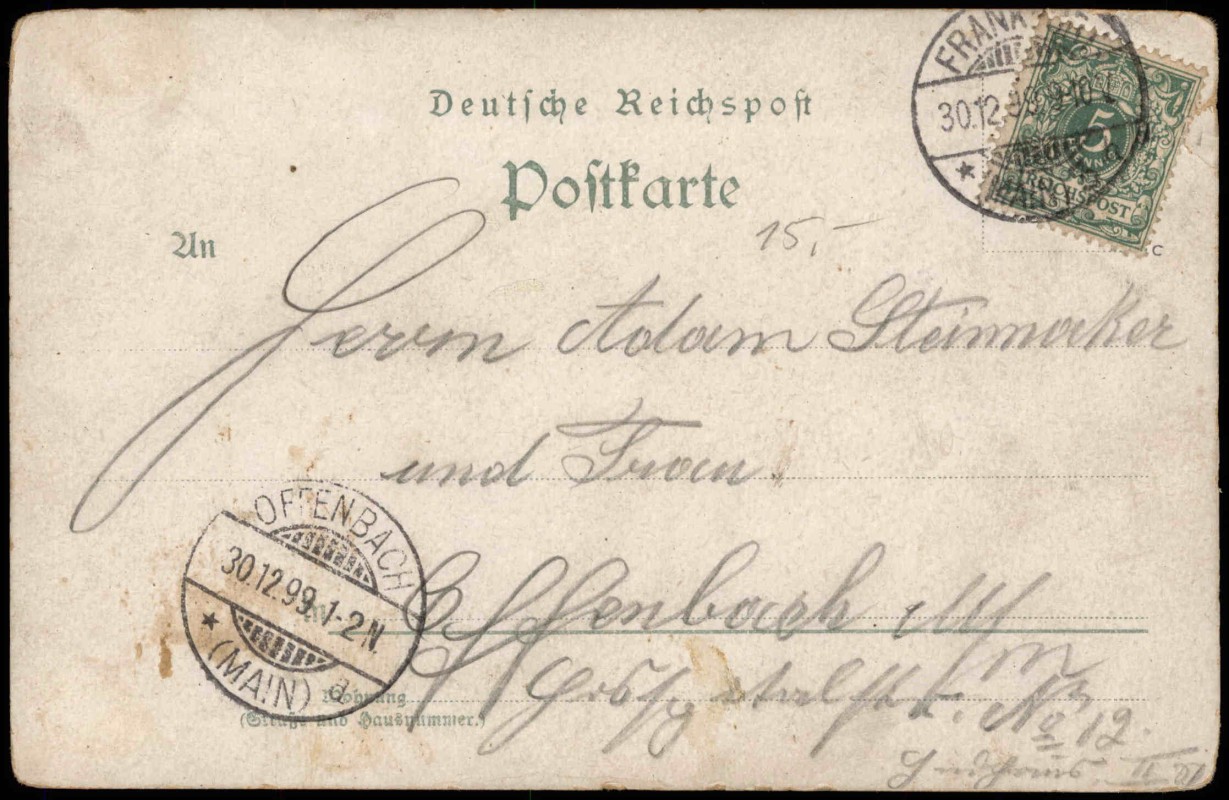 Deutsche Reichspost
Postkarte
FRANK
30.12.99. 9-10
5
PFENNIG
REICHSPOST
C
15,-
An
Herrn Adam Steinmaker
und Frau.
OFFENBACH
30.12.99. 1-2 N.
(MAIN) a
Offenbach a/M
Wohnung
(Straße und Hausnummer.)
No 12.
II